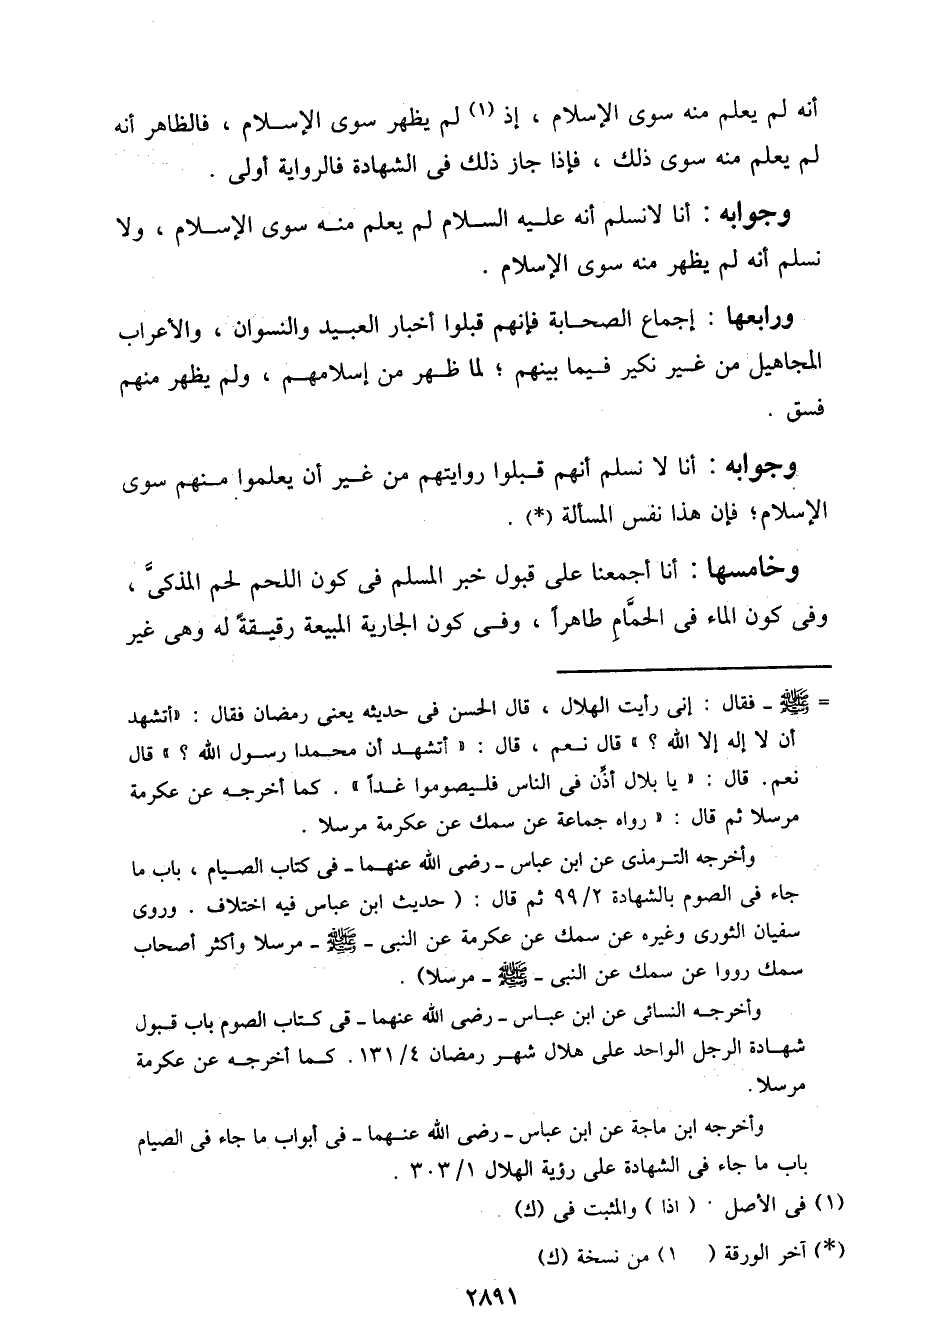 أنه لم يعلم منه سوى الإسلام ، إذ (١) لم يظهر سوى الإسلام ، فالظاهر أنه
لم يعلم منه سوى ذلك ، فإذا جاز ذلك فى الشهادة فالرواية أولى .
وجوابه : أنا لانسلم أنه عليه السلام لم يعلم منه سوى الإسلام ، ولا
نسلم أنه لم يظهر منه سوى الإسلام .
ورابعها : إجماع الصحابة فإنهم قبلوا أخبار العبيد والنسوان ، والأعراب
المجاهيل من غير نكير فيما بينهم ؛ لما ظهر من إسلامهم ، ولم يظهر منهم
فسق .
وجوابه : أنا لا نسلم أنهم قبلوا روايتهم من غير أن يعلموا منهم سوى
الإسلام؛ فإن هذا نفس المسألة (*) .
وخامسها : أنا أجمعنا على قبول خبر المسلم فى كون اللحم لحم المذكىَّ ،
وفى كون الماء فى الحمَّامِ طاهراً ، وفى كون الجارية المبيعة رقيقةً له وهى غير
= ﷺ ـ فقال : إنى رأيت الهلال ، قال الحسن فى حديثه يعنى رمضان فقال : «أتشهد
أن لا إله إلا الله ؟ » قال نعم ، قال : « أتشهد أن محمدا رسول الله ؟ » قال
نعم. قال : « يا بلال أذِّن فى الناس فليصوموا غداً » . كما أخرجه عن عكرمة
مرسلا ثم قال : « رواه جماعة عن سمك عن عكرمة مرسلا .
وأخرجه الترمذى عن ابن عباس ـ رضى الله عنهما ـ فى كتاب الصيام ، باب ما
جاء فى الصوم بالشهادة ٩٩/٢ ثم قال : ( حديث ابن عباس فيه اختلاف . وروى
سفيان الثورى وغيره عن سمك عن عكرمة عن النبى ـ ﷺ ـ مرسلا وأكثر أصحاب
سمك رووا عن سمك عن النبى ـ ﷺ ـ مرسلا) .
وأخرجه النسائى عن ابن عباس ـ رضى الله عنهما ـ قى كتاب الصوم باب قبول
شهادة الرجل الواحد على هلال شهر رمضان ١٣١/٤. كما أخرجه عن عكرمة
مرسلا.
وأخرجه ابن ماجة عن ابن عباس ـ رضى الله عنهما ـ فى أبواب ما جاء فى الصيام
باب ما جاء فى الشهادة على رؤية الهلال ٣٠٣/١ .
(١) فى الأصل . ( اذا ) والمثبت فى (ك)
(*) آخر الورقة ( ١) من نسخة (ك)
٢٨٩١